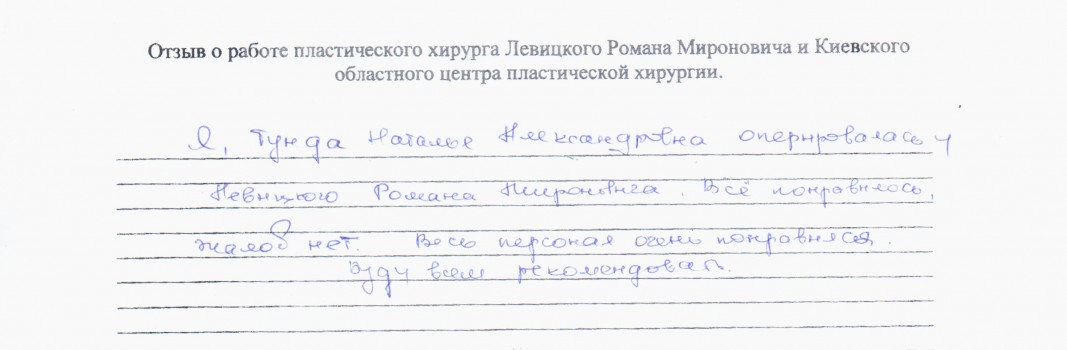 Отзыв о работе пластического хирурга Левицкого Романа Мироновича и Киевского
областного центра пластической хирургии.
Я, Гунда Наталья Александровна оперировалась у
Левицкого Романа Мироновича. Всё понравилось,
жалоб нет. Весь персонал очень понравился.
Буду всем рекомендовать.